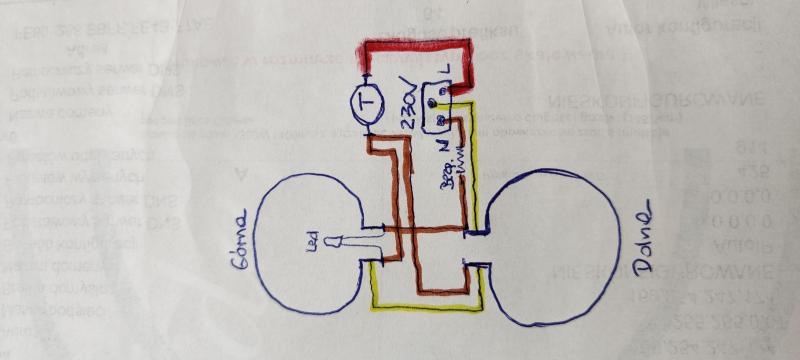 Górna
Led
T
230V
Bezp. N L
Dolna